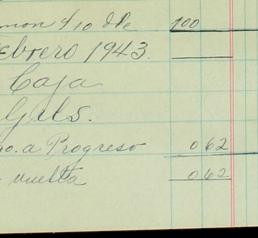 100
ebrero 1943.
Caja
Grls.
o. a Progreso 062
vuelta 062